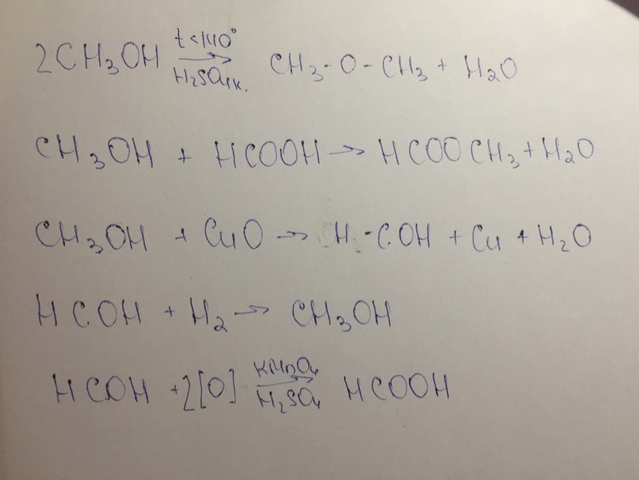 2CH₃OH t<140° → H₂SO₄к. CH₃-O-CH₃ + H₂O
CH₃OH + HCOOH → HCOOCH₃ + H₂O
CH₃OH + CuO → H-COH + Cu + H₂O
HCOH + H₂ → CH₃OH
HCOH + 2[O] KMnO₄ → H₂SO₄ HCOOH